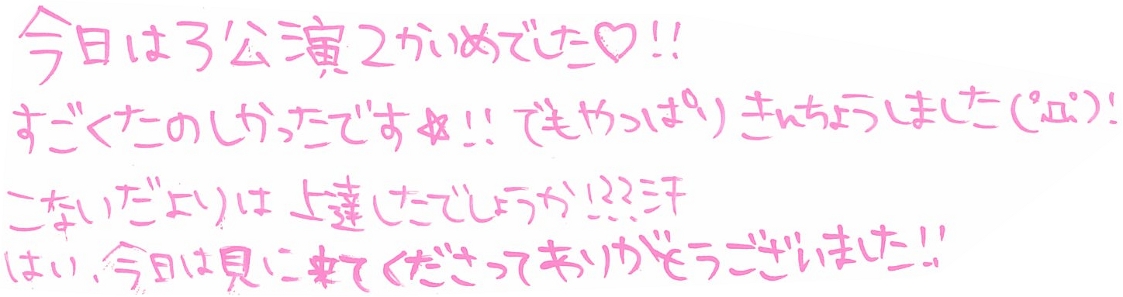 今日は3公演2かいめでした♡!!
すごくたのしかったです☆!! でもやっぱりきんちょうしました(ﾟДﾟ)!
こないだよりは上達したでしょうか!???汗
はい、今日は見に来てくださってありがとうございました!!